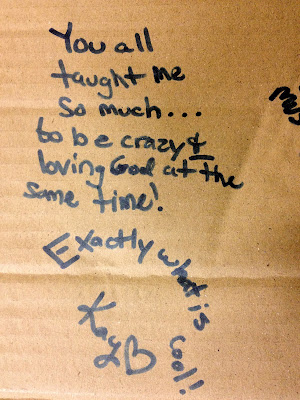 You all
taught me
so much...
to be crazy &
loving God at the
same time!
Exactly what is cool!
Kay B